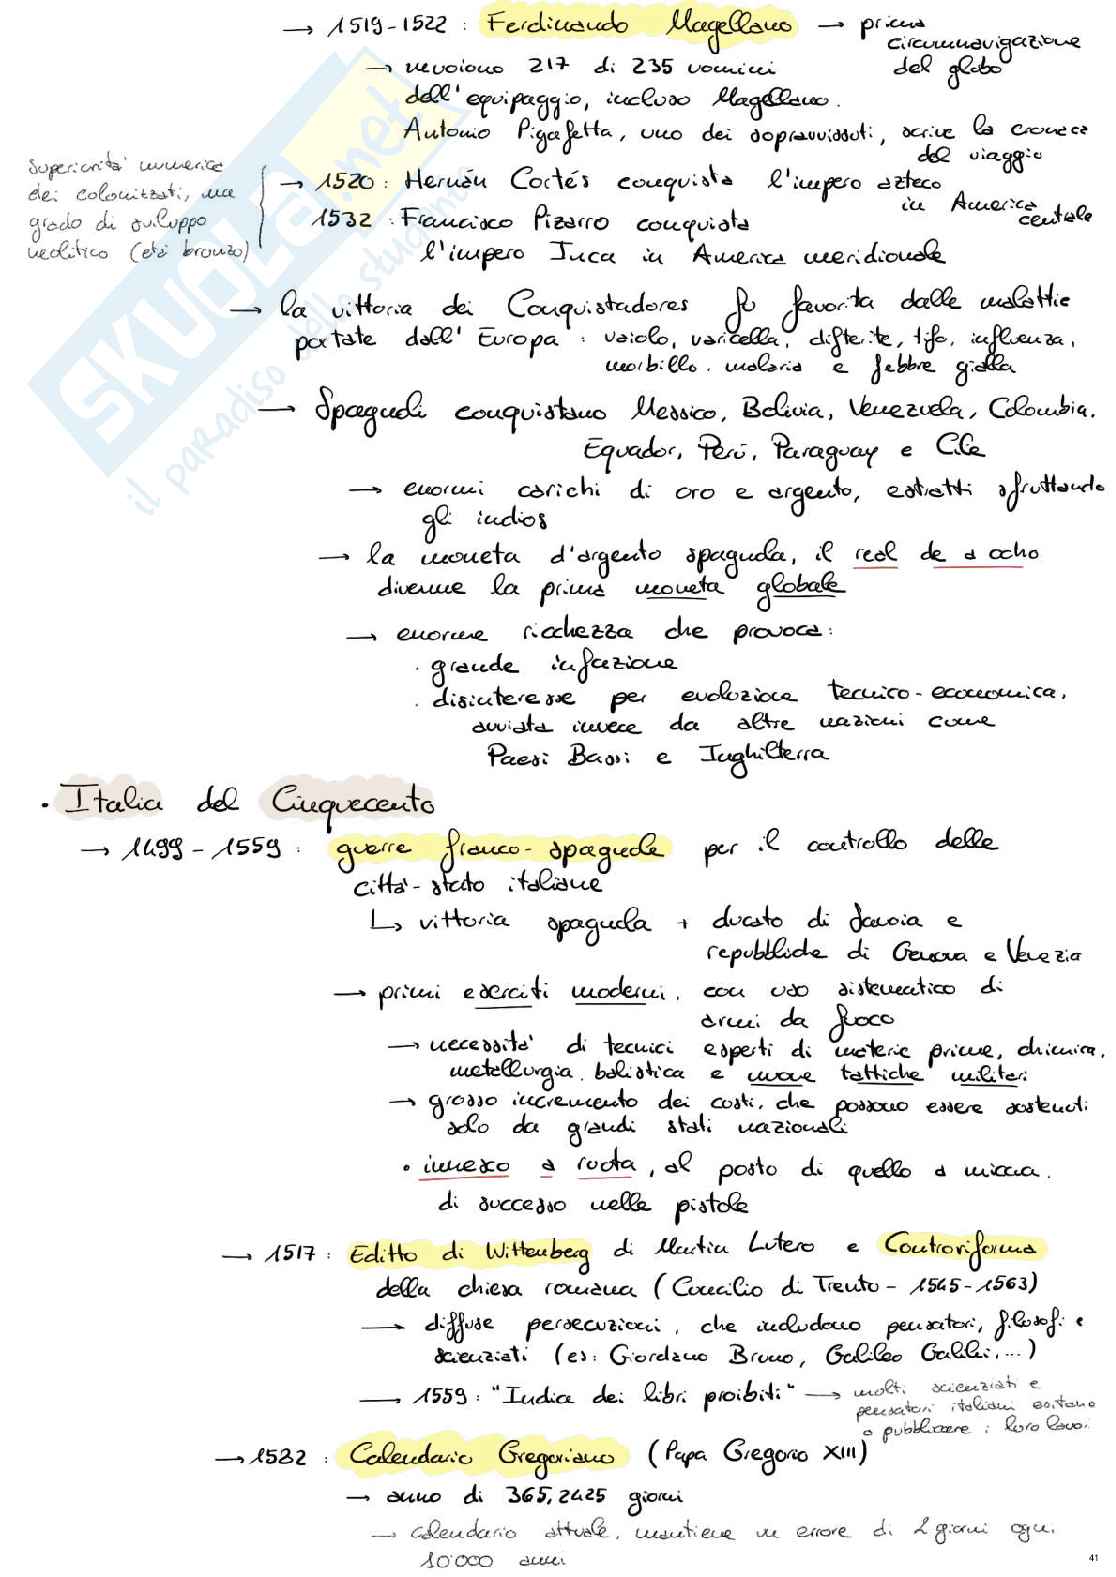 → 1519-1522 : Ferdinando Magellano → prima
circumnavigazione
del globo
→ muoiono 217 di 235 uomini
dell'equipaggio, incluso Magellano.
Antonio Pigafetta, uno dei sopravvissuti, scrive la cronaca
del viaggio
Superiorità numerica
dei colonizzati, ma
grado di sviluppo
neolitico (età bronzo)
→ 1520 : Hernán Cortés conquista l'impero azteco
in America
centrale
1532 : Francisco Pizarro conquista
l'impero Inca in America meridionale
→ la vittoria dei Conquistadores fu favorita dalle malattie
portate dall'Europa : vaiolo, varicella, difterite, tifo, influenza,
morbillo, malaria e febbre gialla
→ Spagnoli conquistano Messico, Bolivia, Venezuela, Colombia,
Equador, Perù, Paraguay e Cile
→ enormi carichi di oro e argento, estratti sfruttando
gli indios
→ la moneta d'argento spagnola, il real de a ocho
divenne la prima moneta globale
→ enorme ricchezza che provoca:
· grande inflazione
· disinteresse per evoluzione tecnico-economica,
avviata invece da altre nazioni come
Paesi Bassi e Inghilterra
· Italia del Cinquecento
→ 1499-1559 : guerre franco-spagnole per il controllo delle
città-stato italiane
↳ vittoria spagnola + ducato di Savoia e
repubbliche di Genova e Venezia
→ primi eserciti moderni, con uso sistematico di
armi da fuoco
→ necessità di tecnici esperti di materie prime, chimica,
metallurgia, balistica e nuove tattiche militari
→ grosso incremento dei costi, che possono essere sostenuti
solo da grandi stati nazionali
· innesco a ruota, al posto di quello a miccia.
di successo nelle pistole
→ 1517 : Editto di Wittenberg di Martin Lutero e Controriforma
della chiesa romana (Concilio di Trento - 1545-1563)
→ diffuse persecuzioni, che includono pensatori, filosofi e
scienziati (es: Giordano Bruno, Galileo Galilei, ...)
→ 1559 : "Indice dei libri proibiti" → molti scienziati e
pensatori italiani esitano
a pubblicare i loro lavori
→ 1582 : Calendario Gregoriano (Papa Gregorio XIII)
→ anno di 365,2425 giorni
→ calendario attuale, mantiene un errore di 2 giorni ogni
10'000 anni
SKUOLA.net
il paradiso dello studente
41